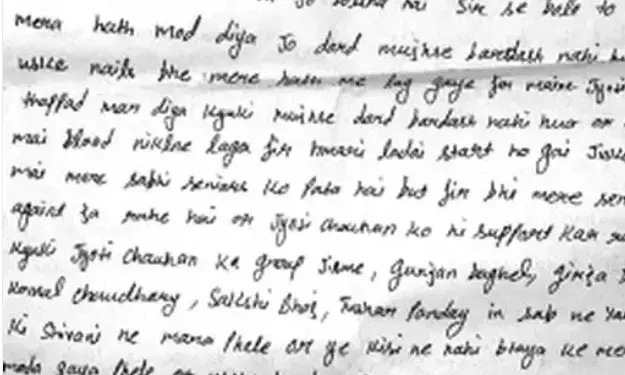 Sir se bole to
mera hath mod diya jo dard mujhse bardash nahi
uske nails bhe mere hath me lag gaye fir maine Jyoti
thappad mar diya kyuki mujhse dard bardash nahi hua or
mai blood niklne laga fir hmari ladai start ho gai
mai mere sabhi seniors ko pata hai but fir bhi mere
against ja rahe hai or Jyoti chauhan ko hi support kar
kyuki Jyoti Chauhan ka group jisme, Gunjan baghel, Girja
Komal Choudhary, Sakshi Bhoj, Panday in sab ne
ki Shivani ne mara phele or ye kisi ne nahi btaya ke
gaya phele